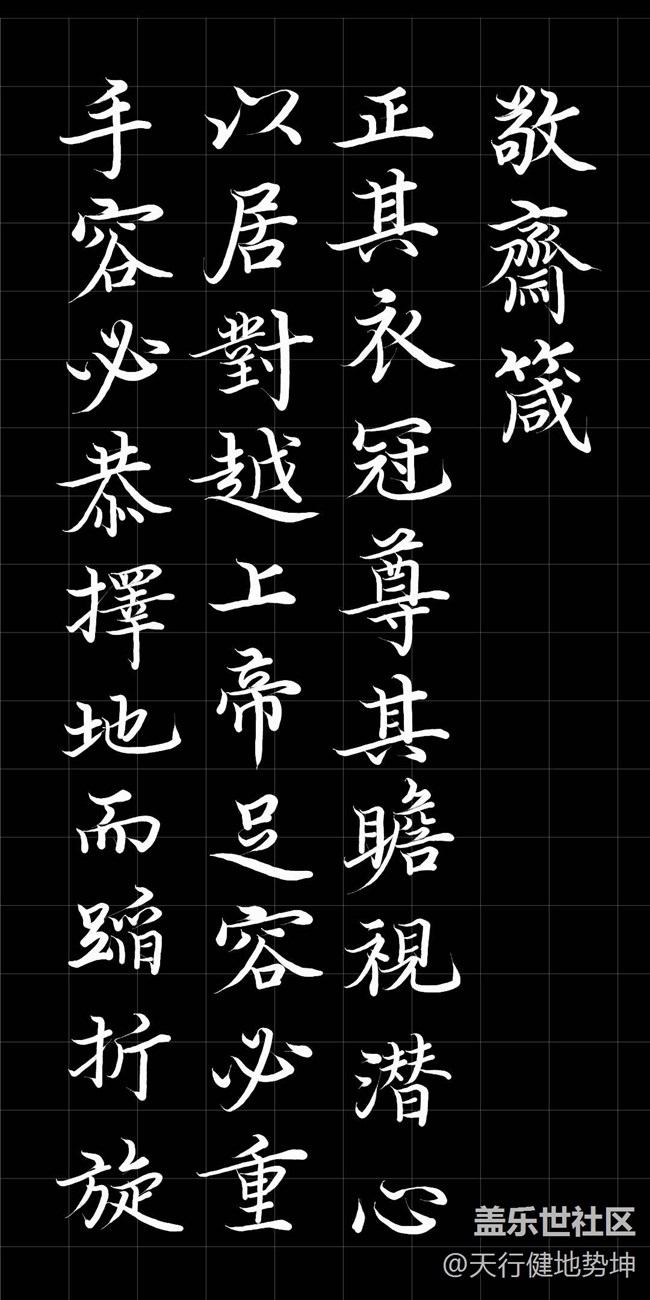 敬齋箴
正其衣冠尊其瞻視潜心
以居對越上帝足容必重
手容必恭擇地而蹈折旋
盖乐世社区
@天行健地势坤